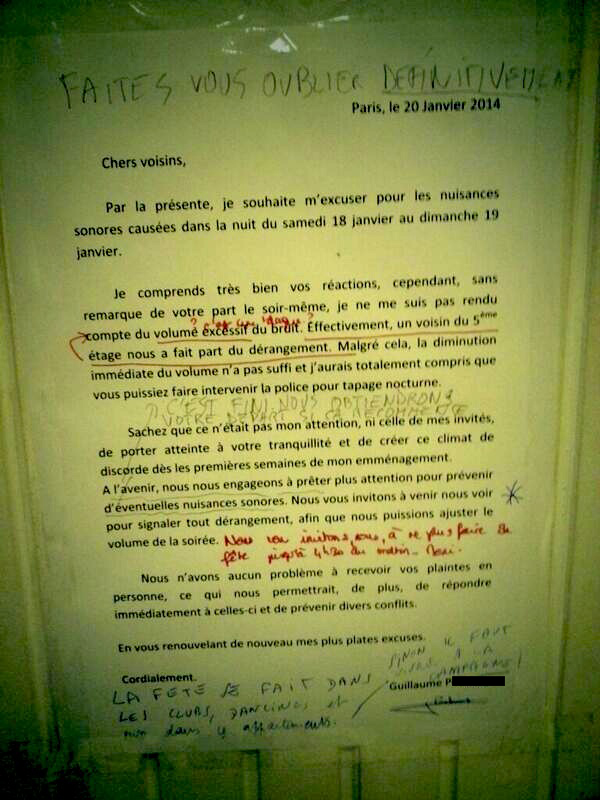 FAITES VOUS OUBLIER DEFINITIVEMENT
Paris, le 20 Janvier 2014
Chers voisins,
Par la présente, je souhaite m'excuser pour les nuisances
sonores causées dans la nuit du samedi 18 janvier au dimanche 19
janvier.
Je comprends très bien vos réactions, cependant, sans
remarque de votre part le soir-même, je ne me suis pas rendu
? c'est une blague ?
compte du volume excessif du bruit. Effectivement, un voisin du 5ème
étage nous a fait part du dérangement. Malgré cela, la diminution
immédiate du volume n'a pas suffi et j'aurais totalement compris que
vous puissiez faire intervenir la police pour tapage nocturne.
C'EST FINI NOUS OBTIENDRONS
VOTRE DEPART SI ÇA RECOMMENCE
Sachez que ce n'était pas mon attention, ni celle de mes invités,
de porter atteinte à votre tranquillité et de créer ce climat de
discorde dès les premières semaines de mon emménagement.
A l'avenir, nous nous engageons à prêter plus attention pour prévenir
d'éventuelles nuisances sonores. Nous vous invitons à venir nous voir
pour signaler tout dérangement, afin que nous puissions ajuster le
volume de la soirée. Nous vous invitons, nous, à ne plus faire de
fête jusqu'à 4h30 du matin. Merci.
Nous n'avons aucun problème à recevoir vos plaintes en
personne, ce qui nous permettrait, de plus, de répondre
immédiatement à celles-ci et de prévenir divers conflits.
En vous renouvelant de nouveau mes plus plates excuses.
Cordialement.
Guillaume P
LA FETE SE FAIT DANS
LES CLUBS, DANCINGS et
non dans appartements.
SINON IL FAUT
VIVRE A LA
CAMPAGNE!